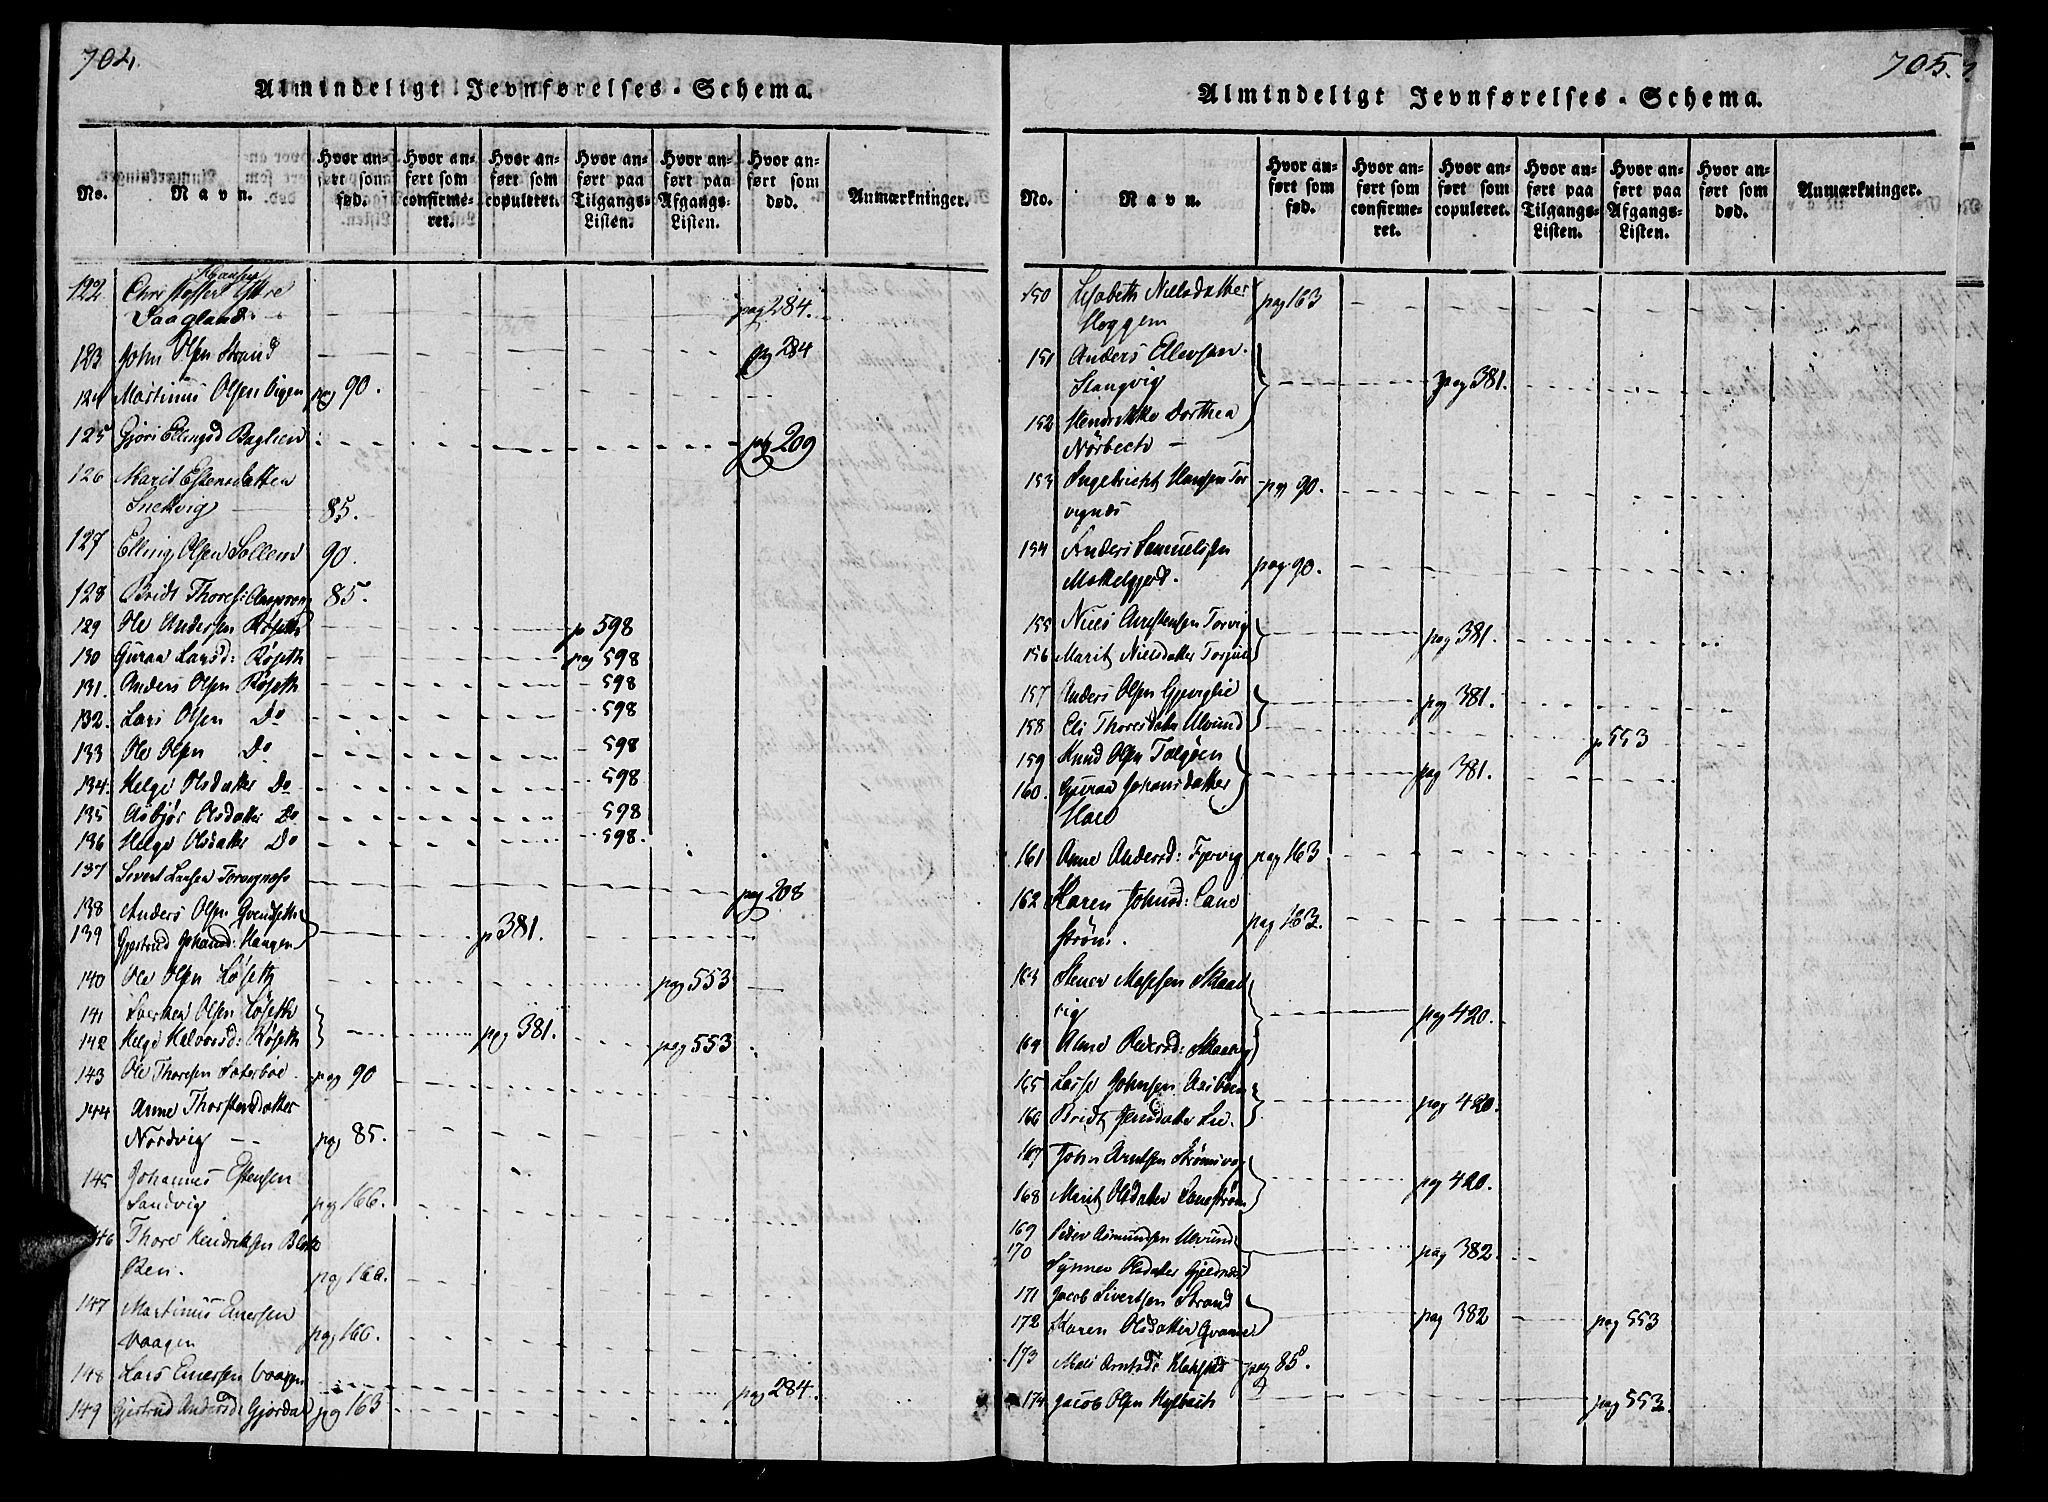 704.
Almindeligt Jevnførelses-Schema.
No.
Navn.
Hvor anført som fød.
Hvor anført som confirmeret.
Hvor anført som copuleret.
Hvor anført paa Tilgangs-Listen.
Hvor anført paa Afgangs-Listen.
Hvor anført som død.
Anmærkninger.
122 Christoffer Hansen Ystre
Saagland pag 284.
123 John Olsen Strand pag 284
124 Martinus Olsen Vigen pag 90.
125 Gjøri Ellingsd Baglien pag 209
126 Marit Estensdatter
Snekvig 85.
127 Elling Olsen Sollem 90.
128 Bridt Thores: 85.
129 Ole Andersen Røseth p 598
130 Guraa Larsd: Røseth pag 598
131. Anders Olsen Røseth 598
132. Lars Olsen Do 598
133 Ole Olsen Do 598
134. Helge Olsdatter Do 598
135 Asbjør Olsdatter Do 598
136 Helge Olsdatter Do 598.
137 Sivert Larsen Torvignæss pag 208
138 Anders Olsen Qvendseth
139 Gjertrud Johansd: Haugen p 381.
140 Ole Olsen Løseth pag 553
141 Olsen Løseth
142 Helge Halvorsd: Røseth pag 381. pag 553
143 Ole Thoresen Sæterboe pag 90
144 Anne Thorstensdatter
Nordvig pag 85.
145 Johannes Estensen
Sandvig pag 166.
146 Thore Hendriksen
pag 166.
147 Martinus Einersen
Vaagen pag 166.
148 Lars Einersen Vaagen pag 284.
149 Gjertrud Andersd: Gjørdal pag 163
705.
Almindeligt Jevnførelses-Schema.
No.
Navn.
Hvor anført som fød.
Hvor anført som confirmeret.
Hvor anført som copuleret.
Hvor anført paa Tilgangs-Listen.
Hvor anført paa Afgangs-Listen.
Hvor anført som død.
Anmærkninger.
150 Lisabeth Nielsdatter
Hoggem pag 163
151 Anders Ellevsen
Stangvig pag 381.
152 Hendrikke Dorthea
Nørbech
153 Ingebricht Hansen Tor
vignæs pag 90.
154 Anders Samuelsen
Mættelgjerd. pag 90.
155 Niels Torvig
156 Marit Nielsdatter Torjul pag 381.
157 Anders Olsen
158 Eli Thoresdatter Ulvund pag 381.
159 Knud Olsen Talgøen p 553
160. Guraa Johansdatter
Hals pag 381.
161 Anne Andersd: Fjervig pag 163
162 Karen Johnsd: Lane
strøm. pag 163.
163 Stener Massesen Skaal
vig pag 420.
164 Anne Reiersd: Skaalvig
165 Lasse Johnsen Aasboen
166 Bridt Jensdatter Lie. pag 420.
167 John Arntsen
168 Marit Olsdatter Lanestrøm pag 420.
169 Peder Asmundsen Ulvund
170 Synnev Olsdatter Gjeldnæs pag 382
171 Jacob Sivertsen Strand
172 Karen Olsdatter Qvanne pag 382 pag 553
173 Mali Arntsd: pag 85.
174 Jacob Olsen Hyldbach pag 553.